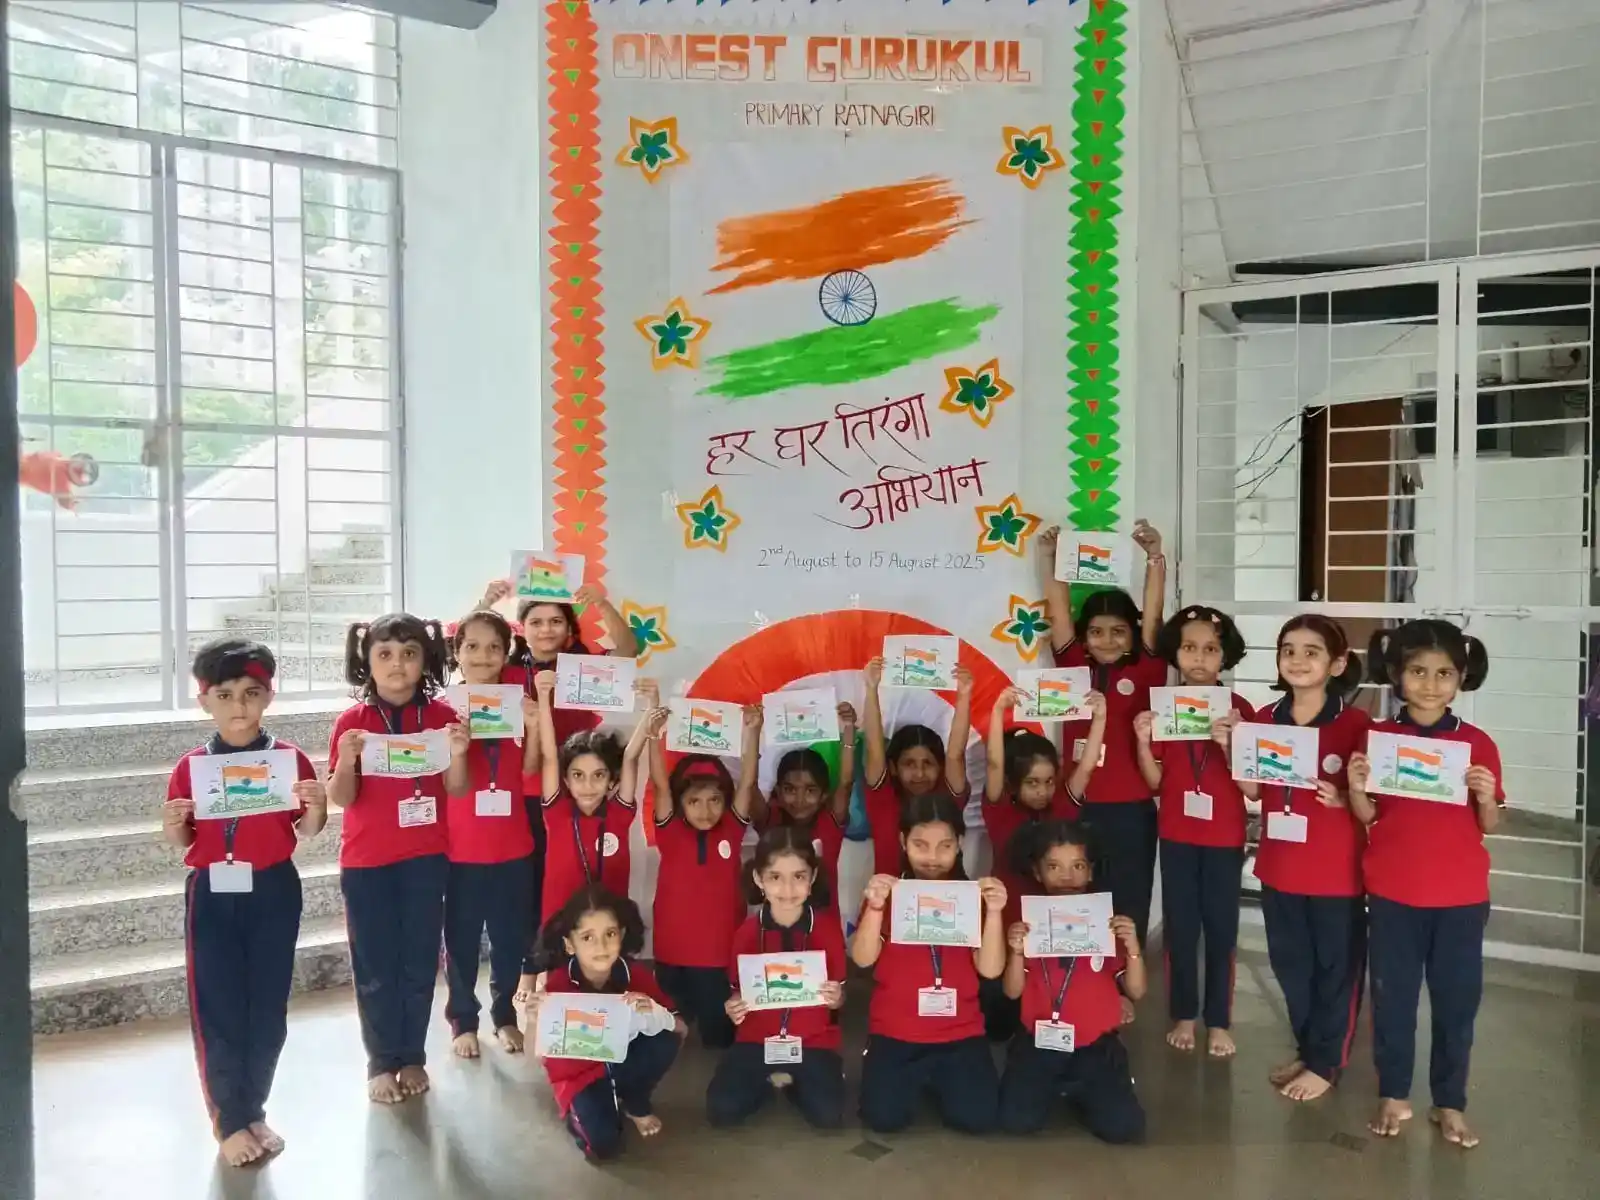 ONEST GURUKUL
PRIMARY RATNAGIRI
हर घर तिरंगा
अभियान
2nd August to 15 August 2025